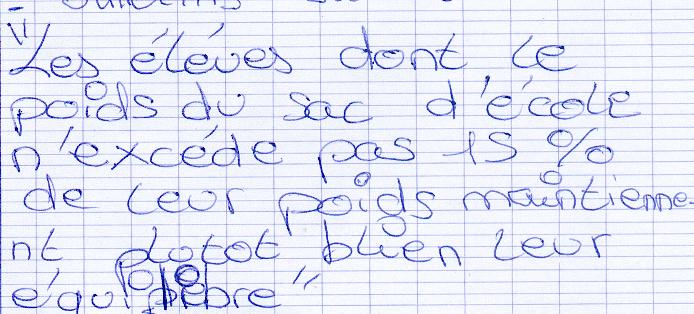 "Les éléves dont le
poids du sac d'école
n'excéde pas 15 %
de leur poids maintienne-
nt plotot bien leur
équilibre"